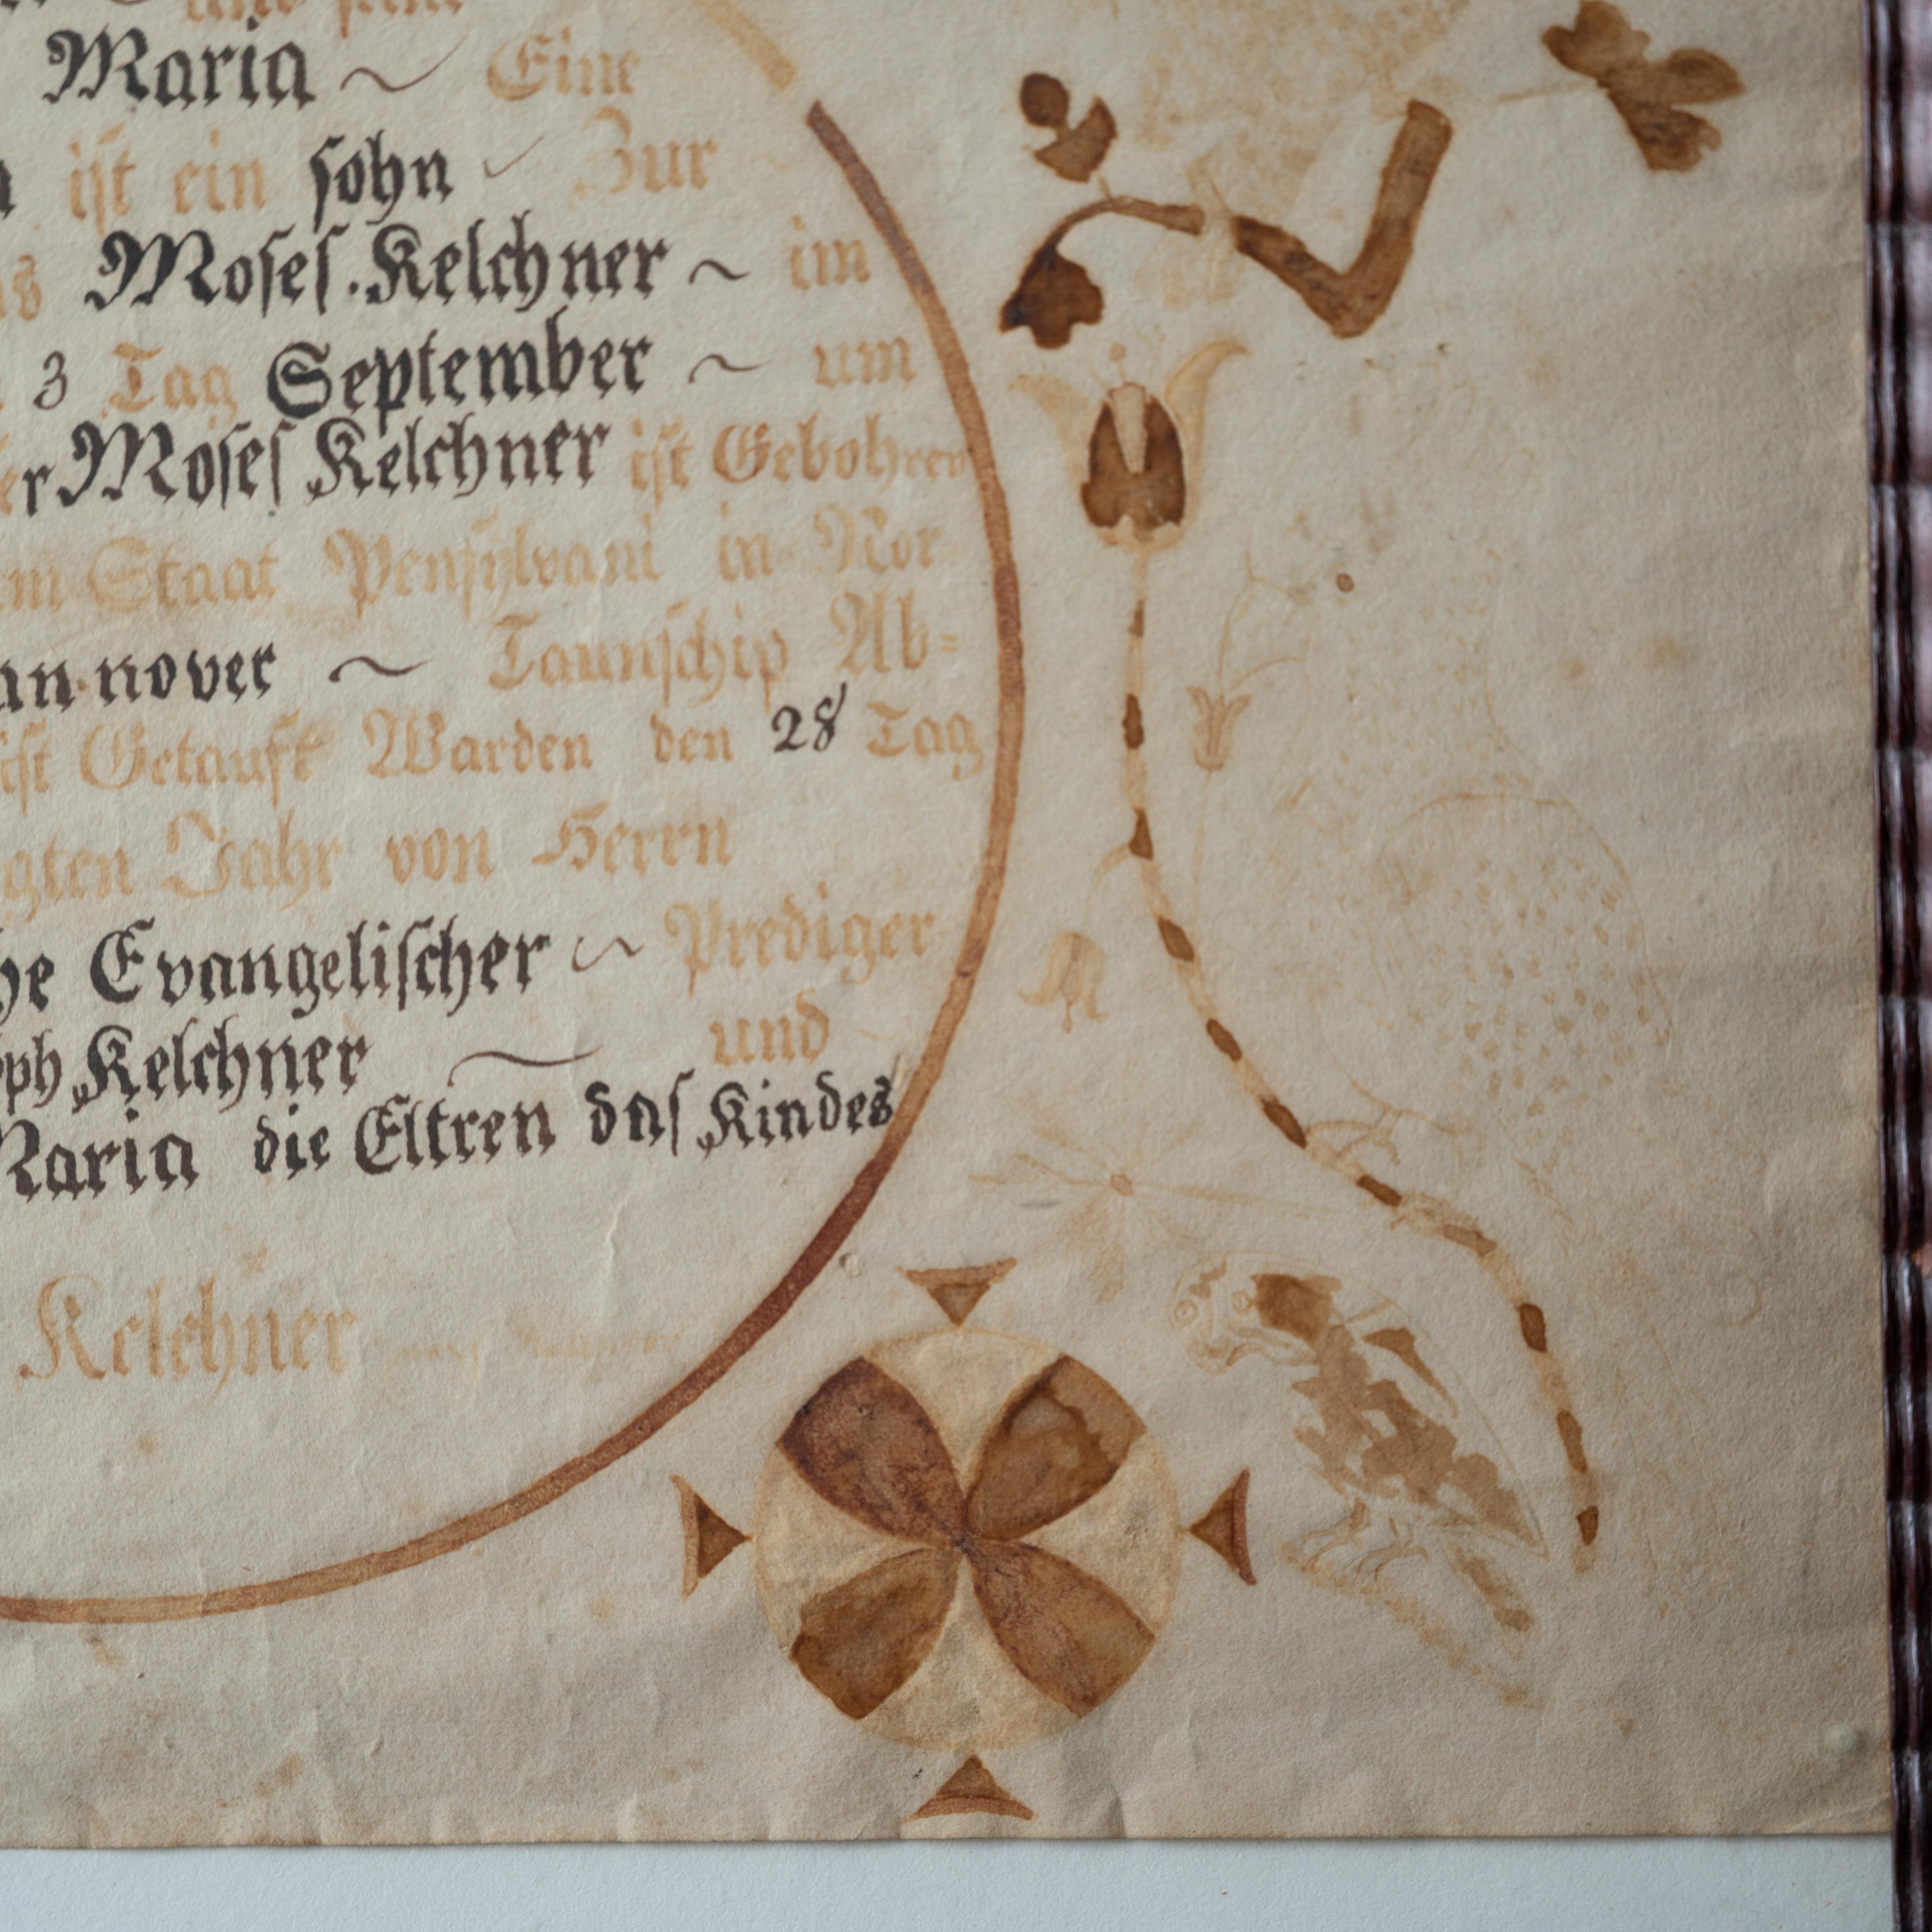 und seine
Maria ~ Eine
ist ein sohn Zur
Moses. Kelchner ~ im
3 Tag September ~ um
Moses Kelchner ist Gebohren
Staat Pensylvani in Nor
nover ~ Taunschip Ab=
ist Getauft Warden den 28 Tag
Jahr von Herrn
Evangelischer ~ Prediger
Kelchner ~ und
Maria die Eltren das Kindes
Kelchner